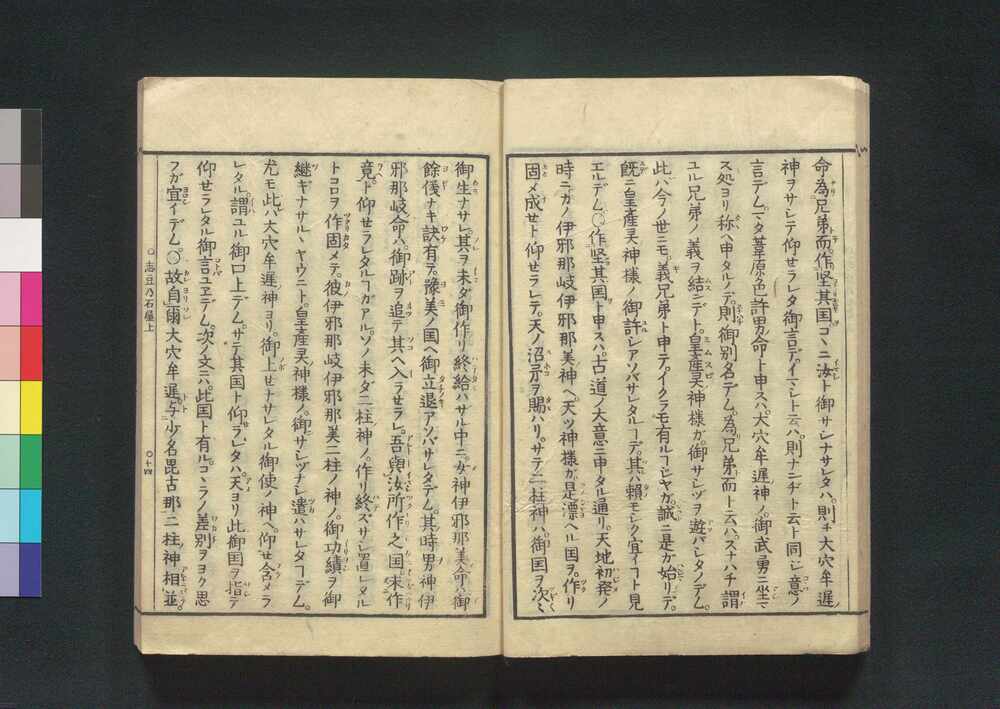 命為兄弟而作堅其國コヽニ汝ト御サシナサレタハ則チ大穴牟遅
神ヲサシテ仰セラレタ御言デイマシト云ハ則ナンヂト云ト同シ意ノ
言デムマタ葦原色許男命ト申スハ大穴牟遅神ノ御武勇ニ坐マ
ス処ヨリ称ヘ申タルノデ則御別名デム為兄弟而ト云ハスナハチ謂
ユル兄弟ノ義ヲ結ニデト皇産灵神様ガ御サシヅヲ遊バレタノデム
此ハ今ノ世ニモ義兄弟ト申テイクラモ有ルヿジヤガ誠ニ是ガ始リデ
既ニ皇産灵神様ノ御許シアソバサレタルヿデ其ハ頼モシク宜イヿト見
エルデム○作堅其国ト申スハ古道ノ大意ニ申タル通リ天地初発ノ
時ニカノ伊邪那岐伊邪那美神ヘ天ツ神様ガ是漂ヘル国ヲ作リ
固メ成セト仰セラレテ天ノ沼矛ヲ賜ハリサテ二柱神ハ御国ヲ次々
御生ナサレ其ヲ未ダ御作リ終給ハサル中ニ女神伊邪那美命ハ御
餘儀ナキ訣有テ豫美ノ国ヘ御立退アソバサレタデム其時男神伊
邪那岐命ハ御跡ヲ追テ其ヘ入ラセラレ吾與汝所作之国未作
竟ト仰セラレタルヿガアルソノ未ダ二柱神ノ作リ終ズサシ置レタル
トコロヲ作固メテ彼伊邪那岐伊邪那美二柱ノ神ノ御功績ヲ御
継ギナサルヽヤウニト皇産灵神様ノ御サシヅナシ遣ハサレタヿデム
尤モ此ハ大穴牟遅神ヨリ御上セナサレタル御使ノ神ヘ仰セ含メラ
レタル謂ユル御口上デムサテ其国ト仰セラレタハ天ヨリ此御国ヲ指テ
仰セラレタル御言ユヱデム次ノ文ニハ此国ト有ルコヽラノ差別ヲヨク思
フガ宜イデム○故自爾大穴牟遅與少名毘古那二柱神相並
○志豆乃石屋上　○十四